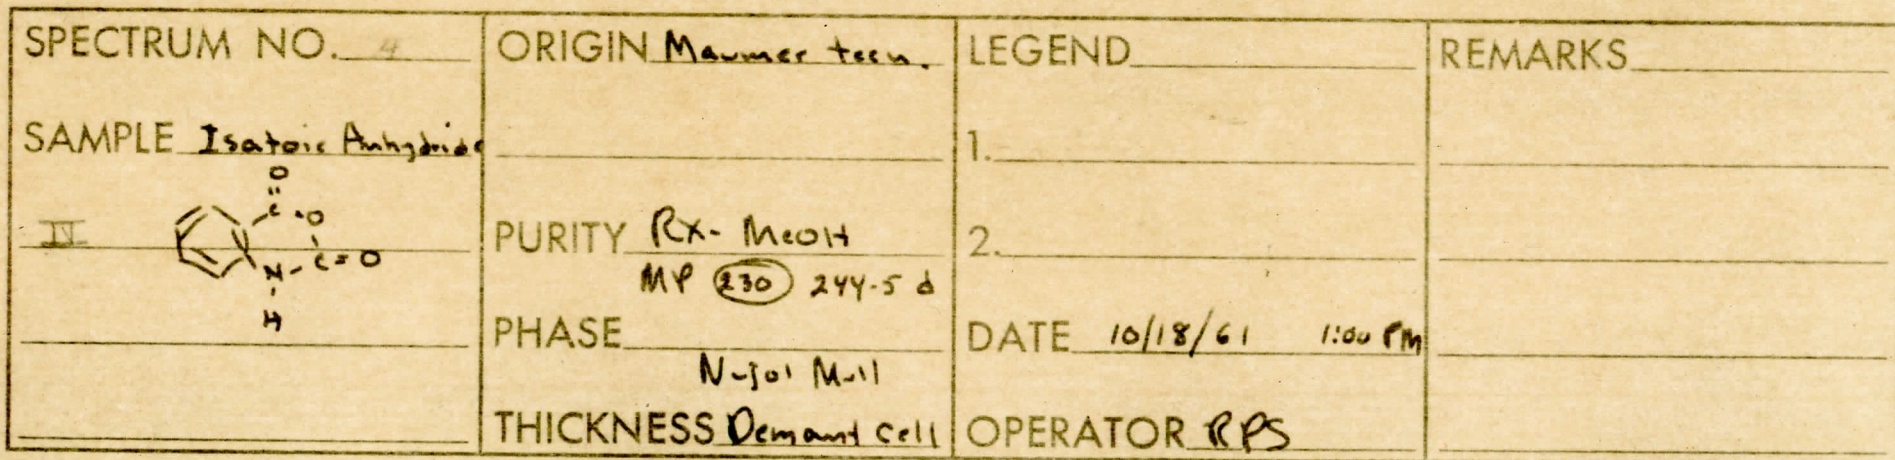 SPECTRUM NO. 4
SAMPLE Isatoic Anhydride
O
C O
IV
N-C=O
H
ORIGIN Maumee tech.
PURITY RX- MeOH
MP 230 244-5 d
PHASE
Nujol Mull
THICKNESS Demount Cell
LEGEND
1.
2.
DATE 10/18/61 1:00 PM
OPERATOR RPS
REMARKS